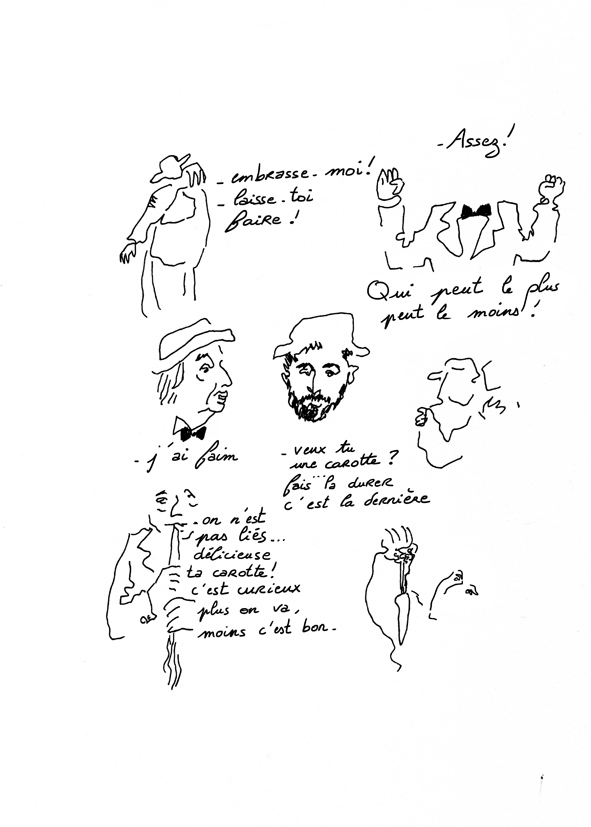 - Assez!
- embrasse-moi!
- laisse-toi
faire!
Qui peut le plus
peut le moins!
- j'ai faim
- veux tu
une carotte?
fais la durer
c'est la dernière
- on n'est
pas liés...
délicieuse
ta carotte!
c'est curieux
plus on va,
moins c'est bon.